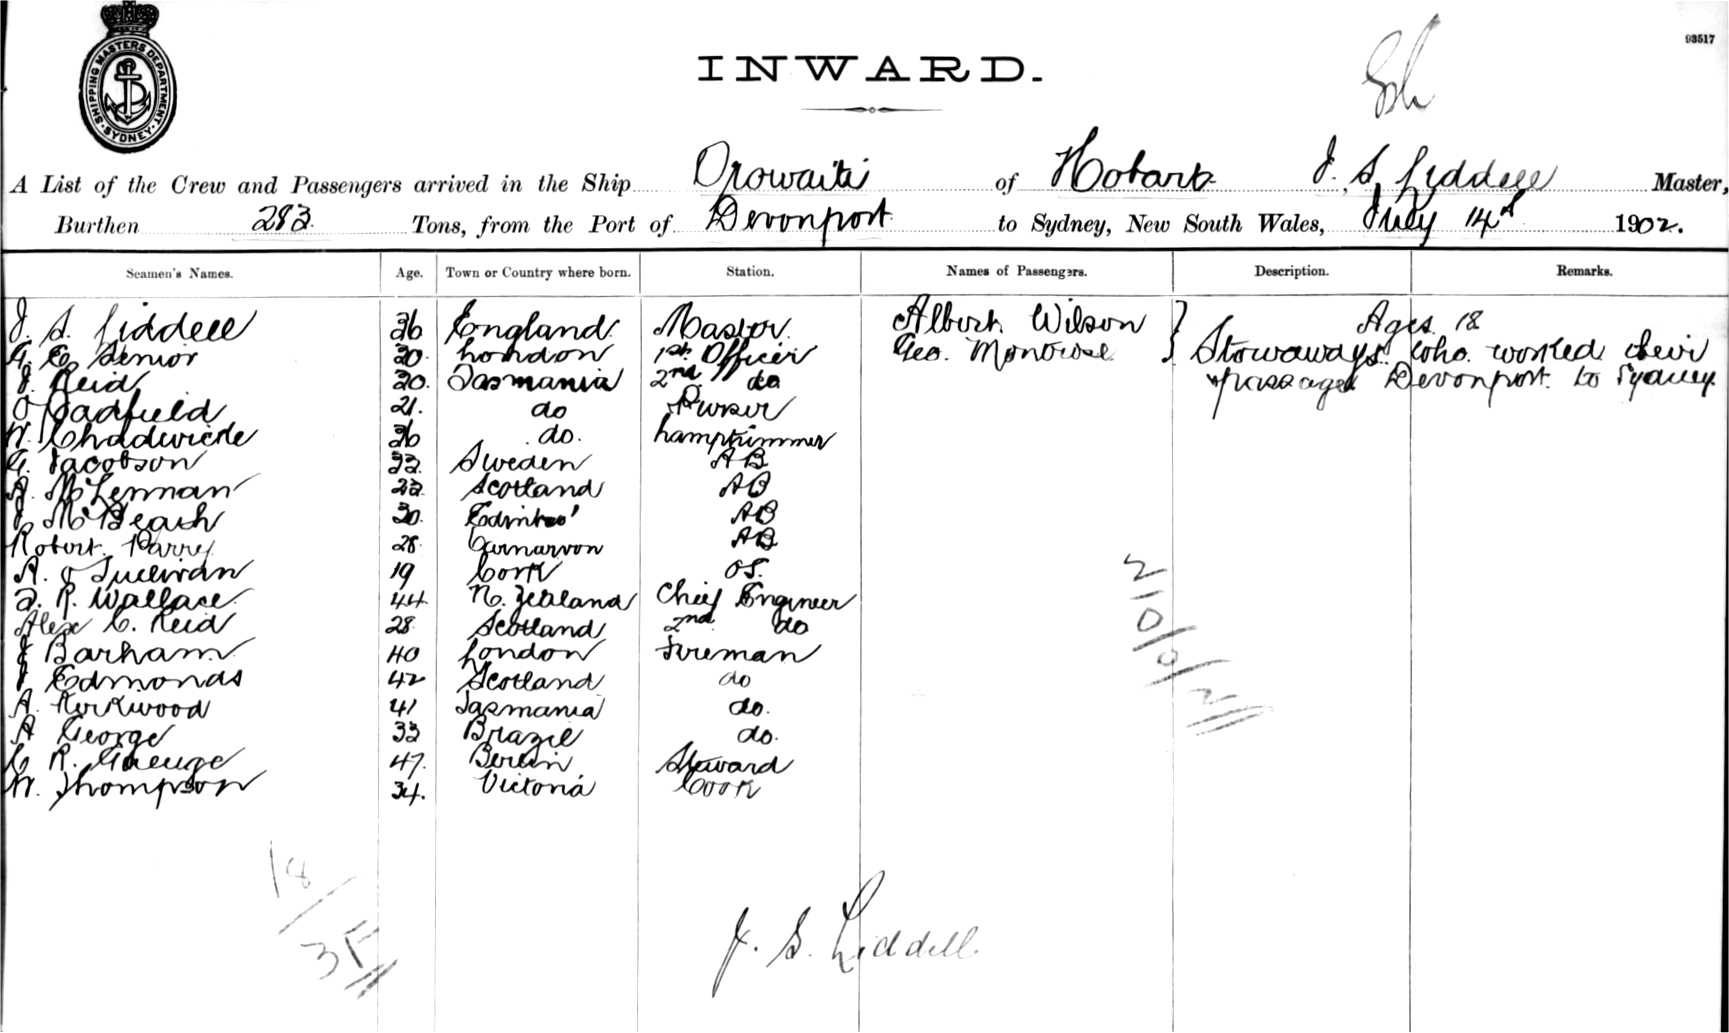 SHIPPING MASTERS DEPARTMENT
SYDNEY
93517
INWARD.
A List of the Crew and Passengers arrived in the Ship Orowaiti of Hobart J. S. Liddell Master,
Burthen 283 Tons, from the Port of Devonport to Sydney, New South Wales, July 14th 1902.
Seamen's Names. Age. Town or Country where born. Station. Names of Passengers. Description. Remarks.
J. S. Liddell 36 England Master Albert Wilson Ages 18
G. E. Senior 30 London 1st Officer Geo. Stowaways who worked their
J. Reid 30. Tasmania 2nd do passage Devonport to Sydney
Padfield 21. do Purser
W. Chadwick 36 do. Lamptrimmer
G. Jacobson 33. Sweden AB
McLennan 23 Scotland AB
McBeath 30. AB
Robert Parry 28 Carnarvon AB
A. O Sullivan 19 Cork OS.
R. Wallace 44 N. Zealand Chief Engineer
Alex C. Reid 28 Scotland 2nd do
J Barham 40 London Fireman
J Edmonds 42 Scotland do
A. Kirkwood 41 Tasmania do.
A George 33 Brazil do.
C R. 47. Berlin Steward
W. Thompson 34. Victoria Cook
18
35
J. S. Liddell